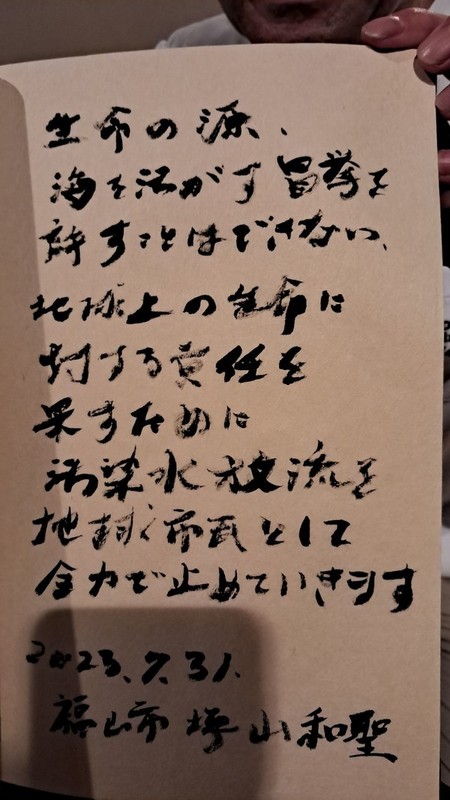 生命の源、
海を汚がす冒挙を
許すことはできない、
地球上の生命に
対する責任を
果すために
汚染水放流を
地球市民として
全力で止めていきます
2023.7.31.
福山市 坪山和聖